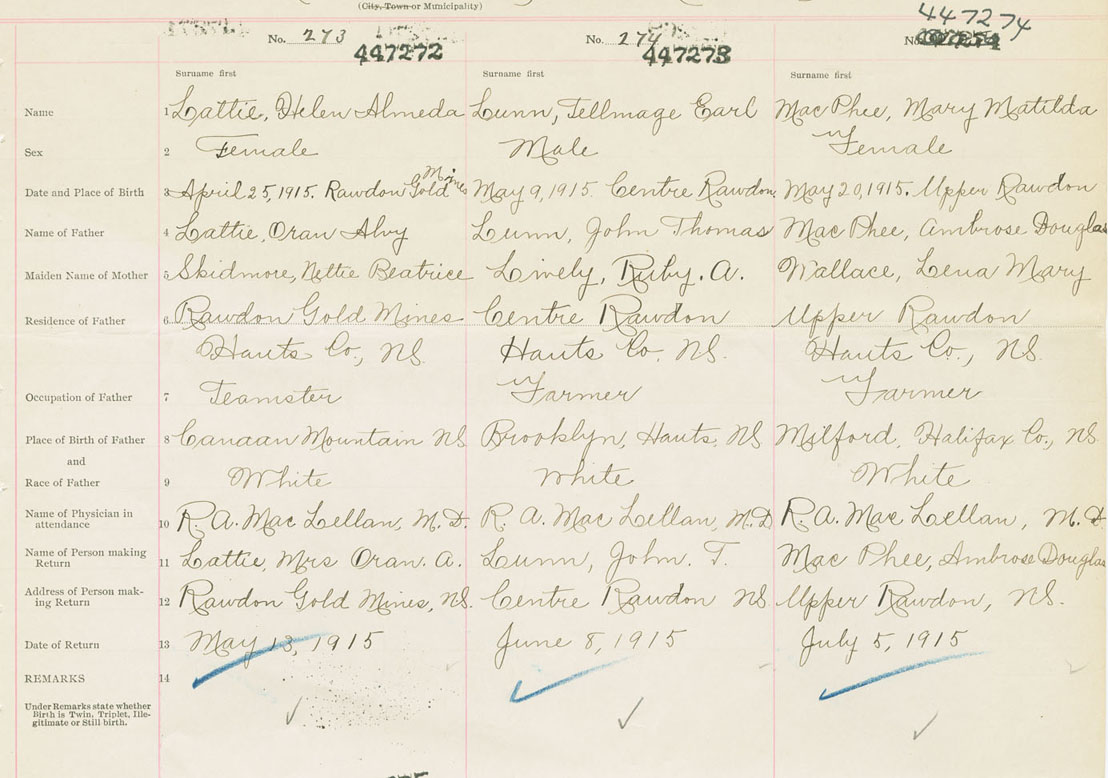 (City, Town or Municipality)
No. 273 No. 274 447274
447272 447273 No.
Surname first Surname first Surname first
Name 1 Lattie, Helen Almeda Lunn, Tellmage Earl Mac Phee, Mary Matilda
Sex 2 Female Male Female
Date and Place of Birth 3 April 25, 1915. Rawdon Gold Mines May 9, 1915 Centre Rawdon. May 20, 1915. Upper Rawdon
Name of Father 4 Lattie, Oran Alvy Lunn, John Thomas Mac Phee, Ambrose Douglas
Maiden Name of Mother 5 Skidmore, Nettie Beatrice Lively, Ruby. A. Wallace, Lena Mary
Residence of Father 6 Rawdon Gold Mines Centre Rawdon Upper Rawdon
Hants Co., NS. Hants Co. NS. Hants Co., NS.
Occupation of Father 7 Teamster Farmer Farmer
Place of Birth of Father 8 Canaan Mountain NS Brooklyn, Hants, NS Milford, Halifax Co., NS
and
Race of Father 9 White White White
Name of Physician in
attendance 10 R. A. Mac Lellan, M.D. R. A. Mac Lellan, M.D R. A. Mac Lellan, M.D
Name of Person making
Return 11 Lattie, Mrs Oran. A. Lunn, John. T. Mac Phee, Ambrose Douglas
Address of Person mak-
ing Return 12 Rawdon Gold Mines, NS. Centre Rawdon NS Upper Rawdon, NS.
Date of Return 13 May 13, 1915 June 8, 1915 July 5, 1915
REMARKS 14
Under Remarks state whether
Birth is Twin, Triplet, Ille-
gitimate or Still birth.